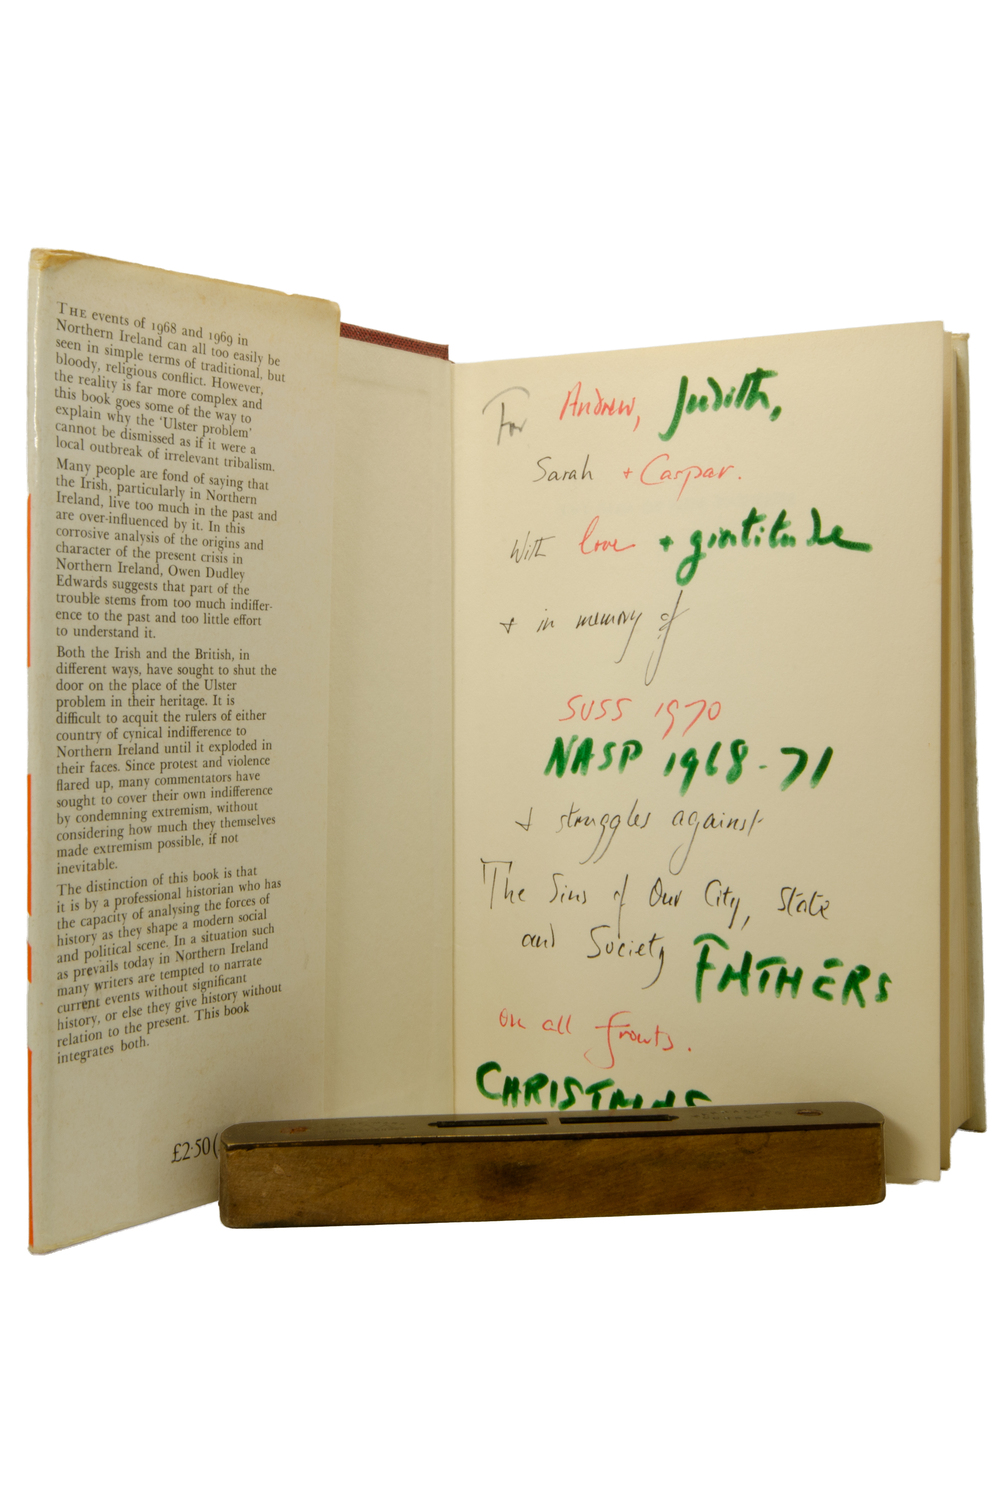 THE events of 1968 and 1969 in
Northern Ireland can all too easily be
seen in simple terms of traditional, but
bloody, religious conflict. However,
the reality is far more complex and
this book goes some of the way to
explain why the 'Ulster problem'
cannot be dismissed as if it were a
local outbreak of irrelevant tribalism.
Many people are fond of saying that
the Irish, particularly in Northern
Ireland, live too much in the past and
are over-influenced by it. In this
corrosive analysis of the origins and
character of the present crisis in
Northern Ireland, Owen Dudley
Edwards suggests that part of the
trouble stems from too much indiffer-
ence to the past and too little effort
to understand it.
Both the Irish and the British, in
different ways, have sought to shut the
door on the place of the Ulster
problem in their heritage. It is
difficult to acquit the rulers of either
country of cynical indifference to
Northern Ireland until it exploded in
their faces. Since protest and violence
flared up, many commentators have
sought to cover their own indifference
by condemning extremism, without
considering how much they themselves
made extremism possible, if not
inevitable.
The distinction of this book is that
it is by a professional historian who has
the capacity of analysing the forces of
history as they shape a modern social
and political scene. In a situation such
as prevails today in Northern Ireland
many writers are tempted to narrate
current events without significant
history, or else they give history without
relation to the present. This book
integrates both.
£2·50(
For Andrew, Judith,
Sarah + Caspar.
With love + gratitude
+ in memory of
SUSS 1970
NASP 1968-71
+ struggles against
The Sins of Our City, State
and Society FATHERS
on all fronts.
CHRISTMAS